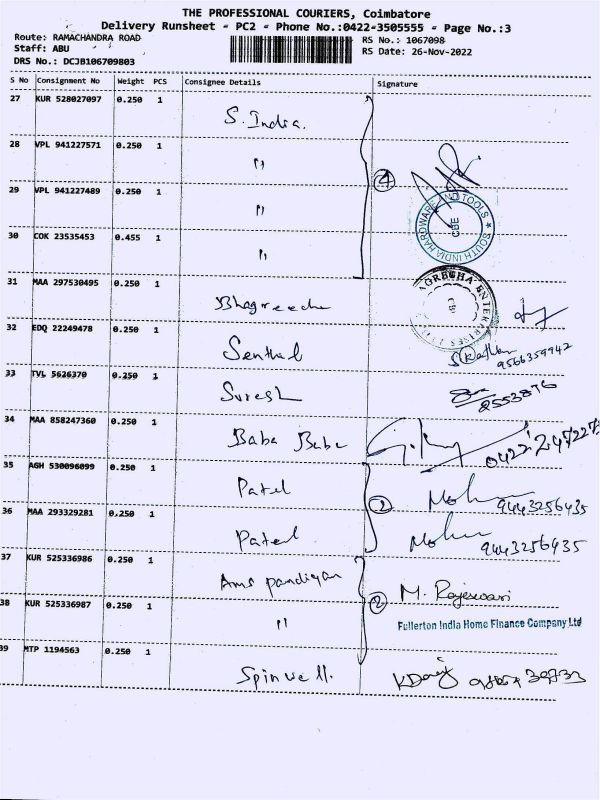 THE PROFESSIONAL COURIERS, Coimbatore
Delivery Runsheet - PC2 - Phone No.:0422-3505555 - Page No.:3
Route: RAMACHANDRA ROAD
Staff: ABU
DRS No.: DCJB106709803
RS No.: 1067098
RS Date: 26-Nov-2022
S No Consignment No Weight PCS Consignee Details Signature
27 KUR 528027097 0.250 1 S. India.
28 VPL 941227571 0.250 1 "
29 VPL 941227489 0.250 1 "
4
SOUTH INDIA HARDWARE AND TOOLS ★ CBE
30 COK 23535453 0.455 1 "
31 MAA 297530495 0.250 1
ENTERPRISES
32 EDQ 22249478 0.250 1 Senthil 9566359942
33 TVL 5626370 0.250 1 Suresh
34 MAA 858247360 0.250 1 Baba Baba
35 AGH 530096099 0.250 1 Patel Mohan 9443256435
2
36 MAA 293329281 0.250 1 Patel Mohan 9443256435
37 KUR 525336986 0.250 1 pandiyan M. Rajeswari
2
38 KUR 525336987 0.250 1 " Fullerton India Home Finance Company Ltd
39 MTP 1194563 0.250 1 Spinwell.